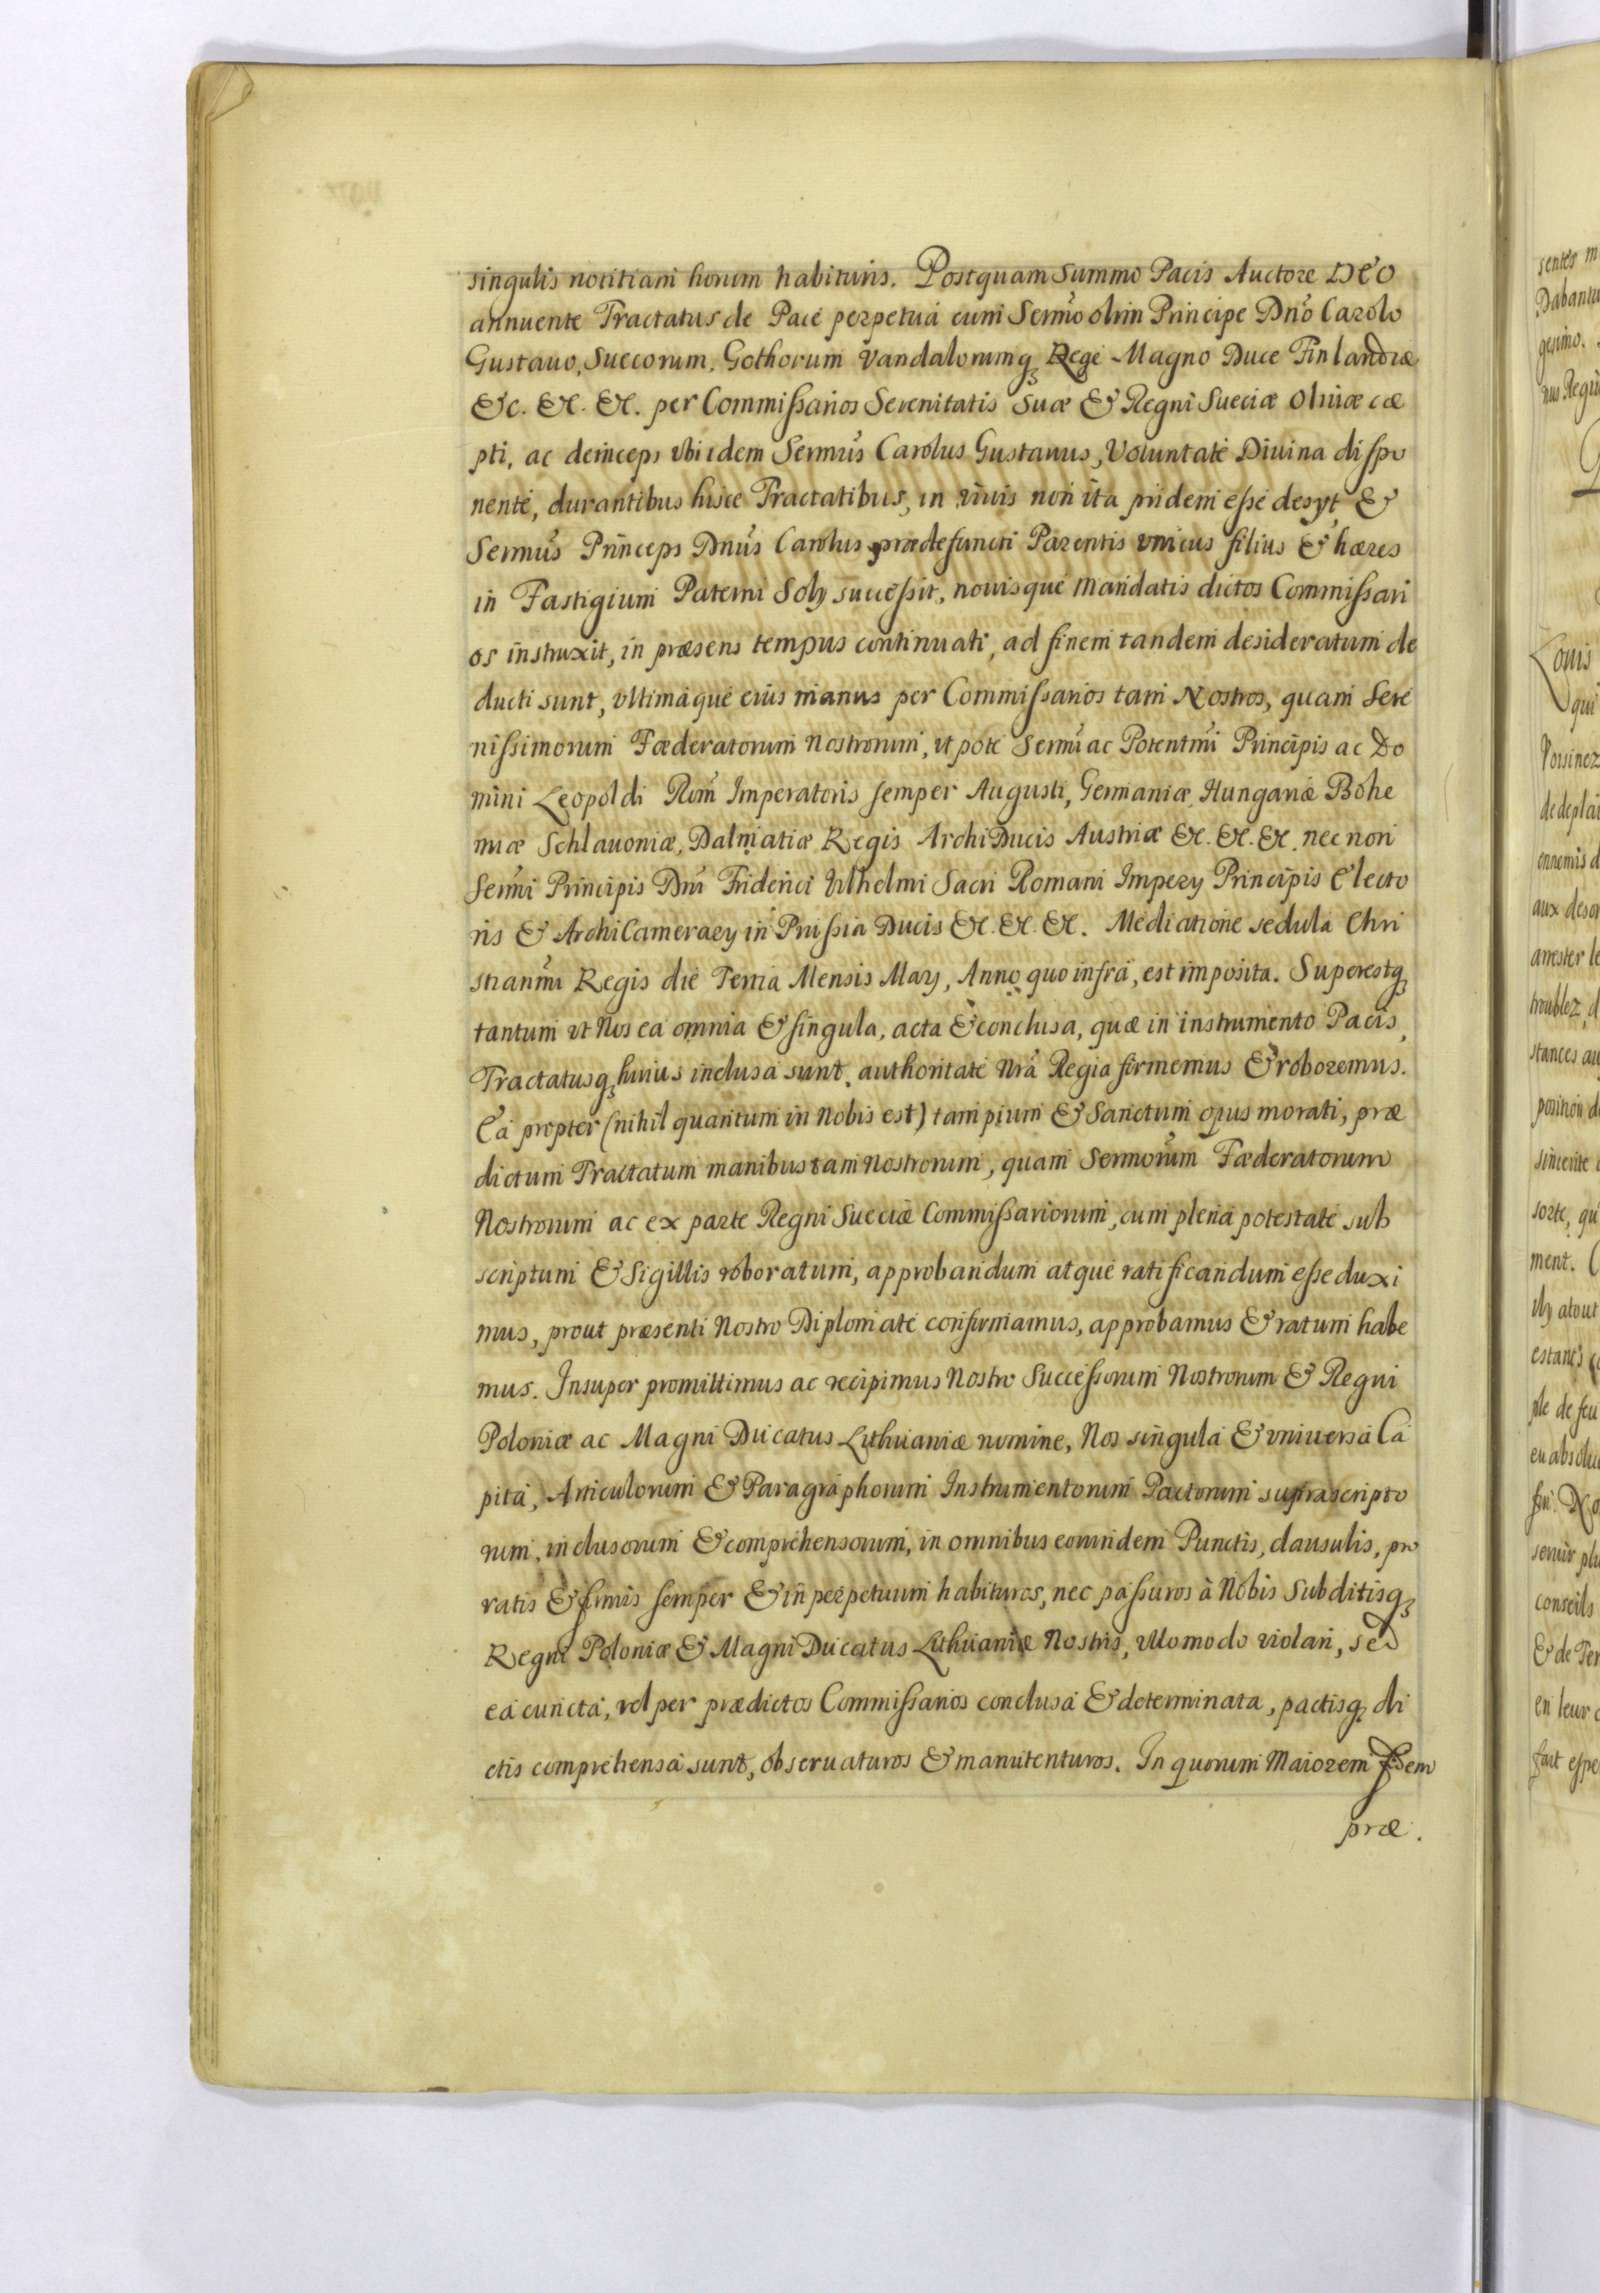 singulis notitiam horum habituris. Postquam Summo Pacis Auctore DEO
annuente Tractatus de Pace perpetua cum Sermo olim Principe Dno Carolo
Gustavo, Suecorum, Gothorum Vandalorumq Rege Magno Duce Finlandiæ
&c. &c. &c. per Commissarios Serenitatis Suæ & Regni Sueciæ Olivæ cæ
pti, ac deinceps vbi idem Sermus Carolus Gustauus, Voluntate Diuina dispo
nente, durantibus hisce Tractatibus, in viuis non ita pridem esse desyt &
Sermus Princeps Dnus Carolus prædefuncti Parentis vnicus filius & hæres
in Fastigium Paterni Soly successit, nouisque mandatis dictos Commissari
os instruxit, in præsens tempus continuati, ad finem tandem desideratum de
ducti sunt, vltimaque eius manus per Commissarios tam Nostros, quam Sere
nissimorum Fœderatorum nostrorum, vt pote Sermi ac Potentmi Principis ac Do
mini Leopoldi Rom Imperatoris semper Augusti, Germaniæ Hungariæ Bohe
miæ Schlauoniæ, Dalmatiæ Regis ArchiDucis Austriæ &c. &c. &c. nec non
Sermi Principis Dni Friderici Vilhelmi Sacri Romani Impery Principis Electo
ris & ArchiCameraey in Prussia Ducis &c. &c. &c. Mediatione sedula Chri
stianmi Regis die Tertia Mensis May, Anno quo infra, est imposita. Superestq
tantum vt Nos ea omnia & singula, acta & conclusa, quæ in instrumento Pacis,
Tractatusq huius inclusa sunt, authoritate Nra Regia firmemus & roboremus.
Ea propter (nihil quantum in Nobis est) tam pium & Sanctum opus morati, præ
dictum Tractatum manibus tam Nostrorum, quam Sermorum Fœderatorum
Nostrorum ac ex parte Regni Sueciæ Commissariorum, cum plena potestate sub
scriptum & Sigillis roboratum, approbandum atque ratificandum esse duxi
mus, prout præsenti Nostro Diplomate confirmamus, approbamus & ratum habe
mus. Insuper promittimus ac recipimus Nostro Successorum Nostrorum & Regni
Poloniæ ac Magni Ducatus Lithuaniæ nomine, Nos singula & vniuersa Ca
pita, Articulorum & Paragraphorum Instrumentorum Pactorum suprascripto
rum, inclusorum & comprehensorum, in omnibus eorundem Punctis, clausulis, pro
ratis & firmis semper & in perpetuum habituros, nec passuros à Nobis Subditisq
Regni Poloniæ & Magni Ducatus Lithuaniæ Nostris, vllo modo violari, sed
ea cuncta, vel per prædictos Commissarios conclusa & determinata, pactisq di
ctis comprehensa sunt, obseruaturos & manutenturos. In quorum Maiorem fidem
præ.